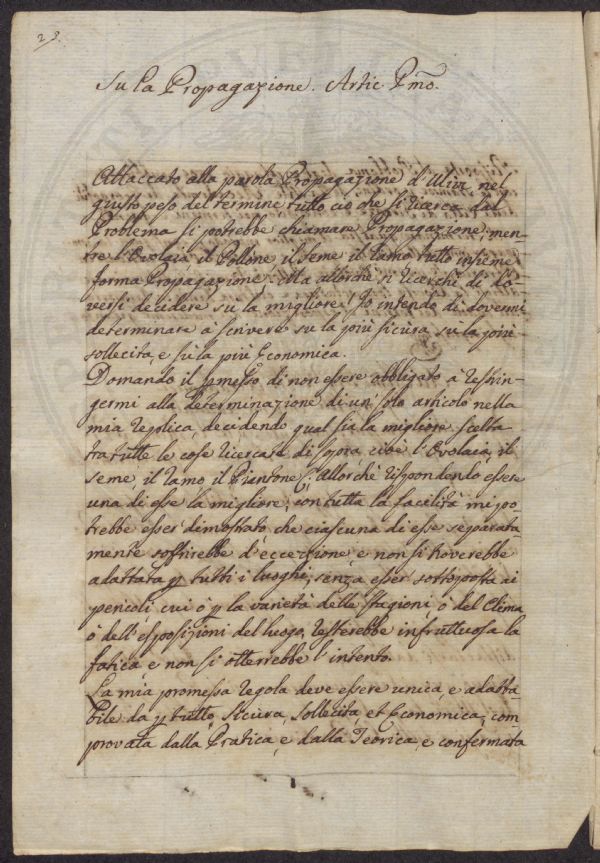 29.
Su la Propagazione. Artic. Pmo.
Attaccato alla parola Propagazione d'Ulivi nel
giusto peso del termine tutto ciò che si ricerca dal
Problema si potrebbe chiamare Propagazione, men-
tre l'Ovolaia, il Pollone il seme il ramo tutto insieme
forma Propagazione. Ma allorchè si ricerchi di do-
versi decidere su la migliore, Io intendo di dovermi
determinare à scrivere su la più sicura, su la più
sollecita, e su la più Economica.
Domando il permesso di non essere obbligato à restrin-
germi alla determinazione di un solo articolo nella
mia replica, decidendo qual sia la migliore scelta
tra tutte le cose ricercate di sopra, cioè l'Ovolaia, il
seme, il ramo il Piantone &. Allorchè rispondendo essere
una di esse la migliore, con tutta la facilità mi po-
trebbe esser dimostrato, che ciascuna di esse separata-
mente soffrirebbe d'eccezzione, e non si troverebbe
adattata p tutti i luoghi, senza esser sottoposta ai
pericoli, cui ò p la varietà delle stagioni ò del Clima
ò dell'esposizioni del luogo, resterebbe infruttuosa la
fatica, e non si otterrebbe l'intento.
La mia promessa regola deve essere unica, e adatta-
bile da p tutto, sicura, sollecita, et Economica, com-
provata dalla Pratica, e dalla Teorica, e confermata